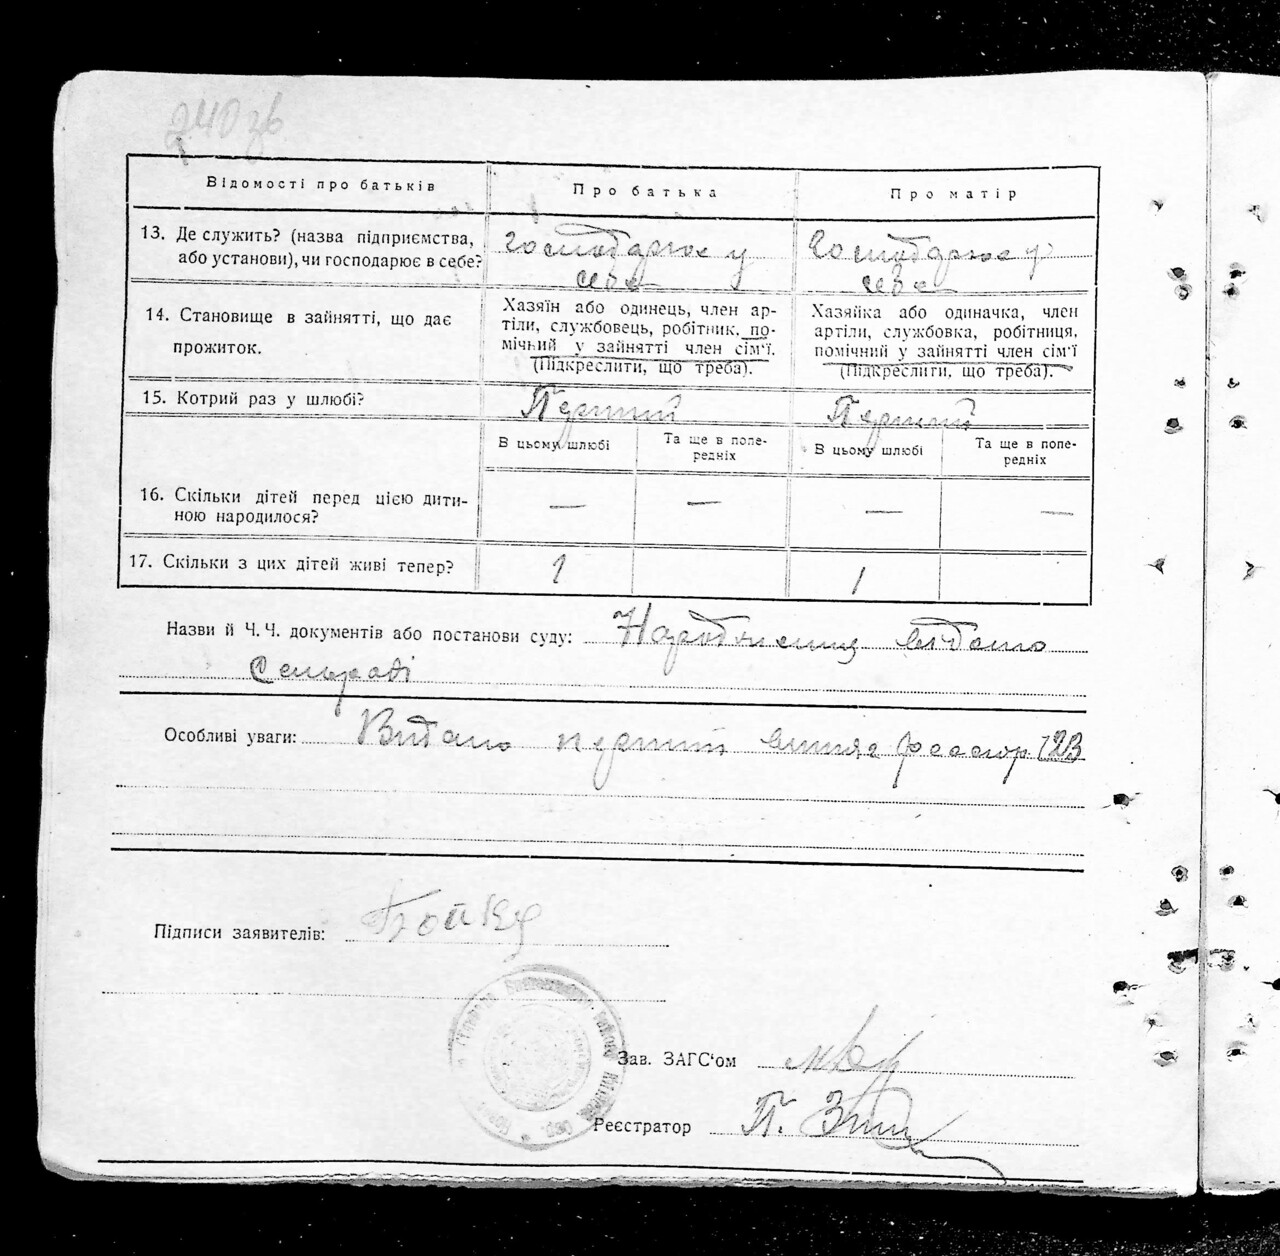 240 зв
Відомості про батьків
Про батька
Про матір
13. Де служить? (назва підприємства,
або установи), чи господарює в себе?
Господарює у
себе
Господарює у
себе
14. Становище в зайнятті, що дає
прожиток.
Хазяїн або одинець, член ар-
тіли, службовець, робітник, по-
мічний у зайнятті член сім'ї.
(Підкреслити, що треба).
Хазяйка або одиначка, член
артіли, службовка, робітниця,
помічний у зайнятті член сім'ї
(Підкреслити, що треба).
15. Котрий раз у шлюбі?
Перший
Перший
В цьому шлюбі
Та ще в попе-
редніх
В цьому шлюбі
Та ще в попе-
редніх
16. Скільки дітей перед цією дити-
ною народилося?
—
—
—
—
17. Скільки з цих дітей живі тепер?
1
1
Назви й Ч. Ч. документів або постанови суду:
Сельраді
Особливі уваги: Видано перший
Підписи заявителів: Бойко
Зав. ЗАГС'ом
Реєстратор П.